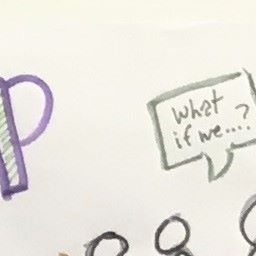 What
if we....?